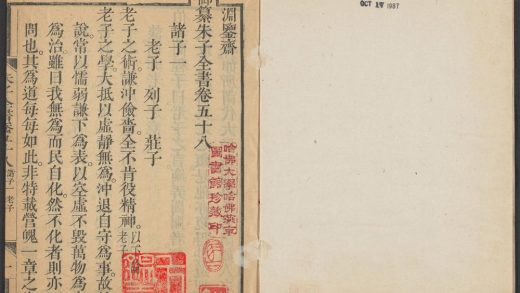 淵鑒齋
御纂朱子全書卷五十八
諸子一
老子 列子 莊子
老子
老子之術謙沖儉嗇全不肯役精神
老子之學大抵以虛靜無為沖退自守為事故
說常以懦弱謙下為表以空虛不毀萬物為
為治雖曰我無為而民自化然不化者則亦
問也其為道每每如此非特載營魄一章之
朱子全書卷五十八 諸子一 老子 一
哈佛大學哈佛燕京
圖書館珍藏印
OCT 1 1987